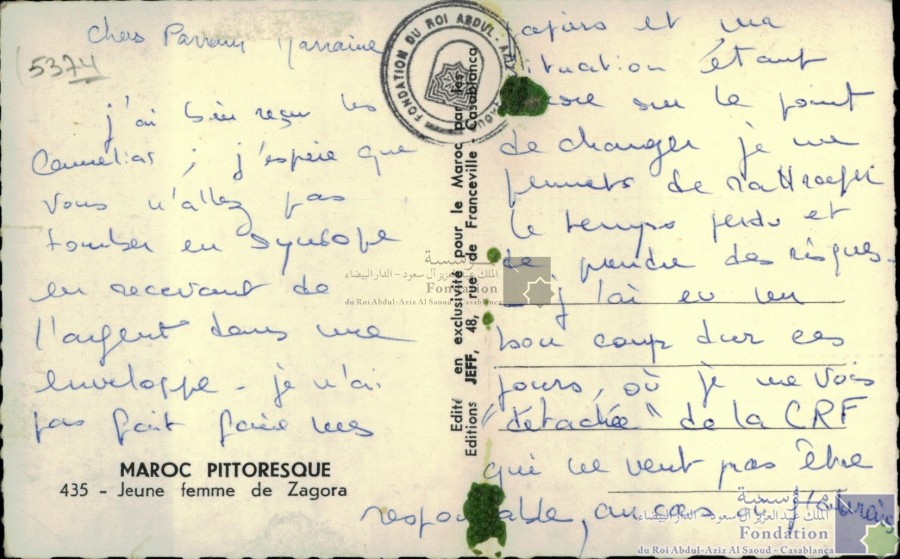 Chers Parrain Marraine
5374
j'ai bien reçu les
Camélias ; j'espère que
vous n'allez pas
tomber en syncope
en recevant de
l'argent dans une
enveloppe - je n'ai
pas fait faire mes
MAROC PITTORESQUE
435 - Jeune femme de Zagora
FONDATION DU ROI ABDUL-AZIZ
Edité en exclusivité pour le Maroc par les
Editions JEFF, 48, rue de Franceville - Casablanca
papiers et ma
situation étant
sur le point
de changer je me
permets de rattraper
le temps perdu et
de prendre des risques.
j'ai eu un
bon coup dur ces
jours, où je me vois
"détachée" de la CRF
qui ne veut pas être
responsable, au cas où j'aurais
مؤسسة
الملك عبد العزيز آل سعود - الدار البيضاء
Fondation
du Roi Abdul-Aziz Al Saoud - Casablanca
مؤسسة
الملك عبد العزيز آل سعود - الدار البيضاء
Fondation
du Roi Abdul-Aziz Al Saoud - Casablanca